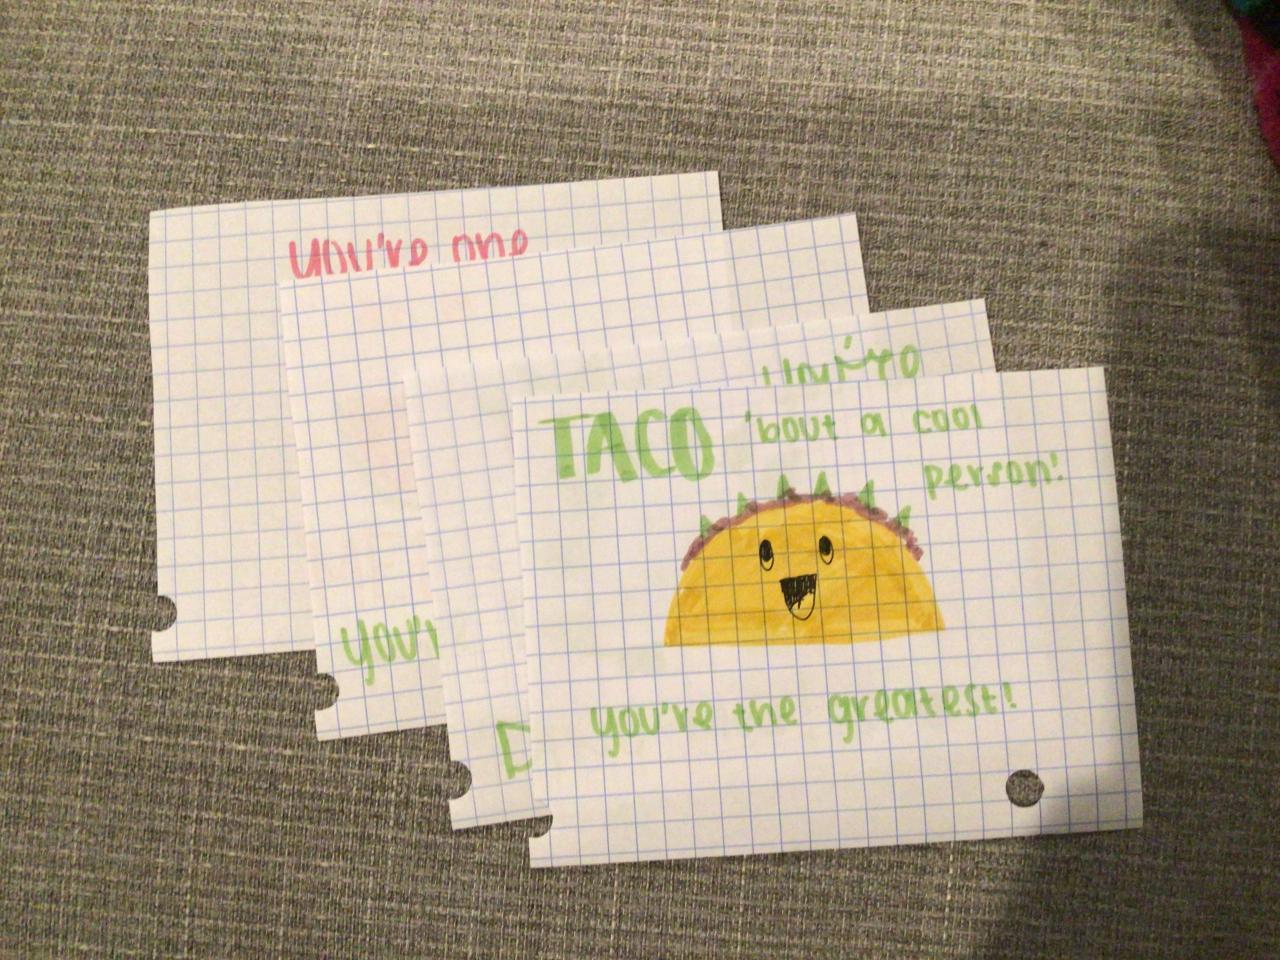 You're one
TACO 'bout a cool
person!
you're the greatest!